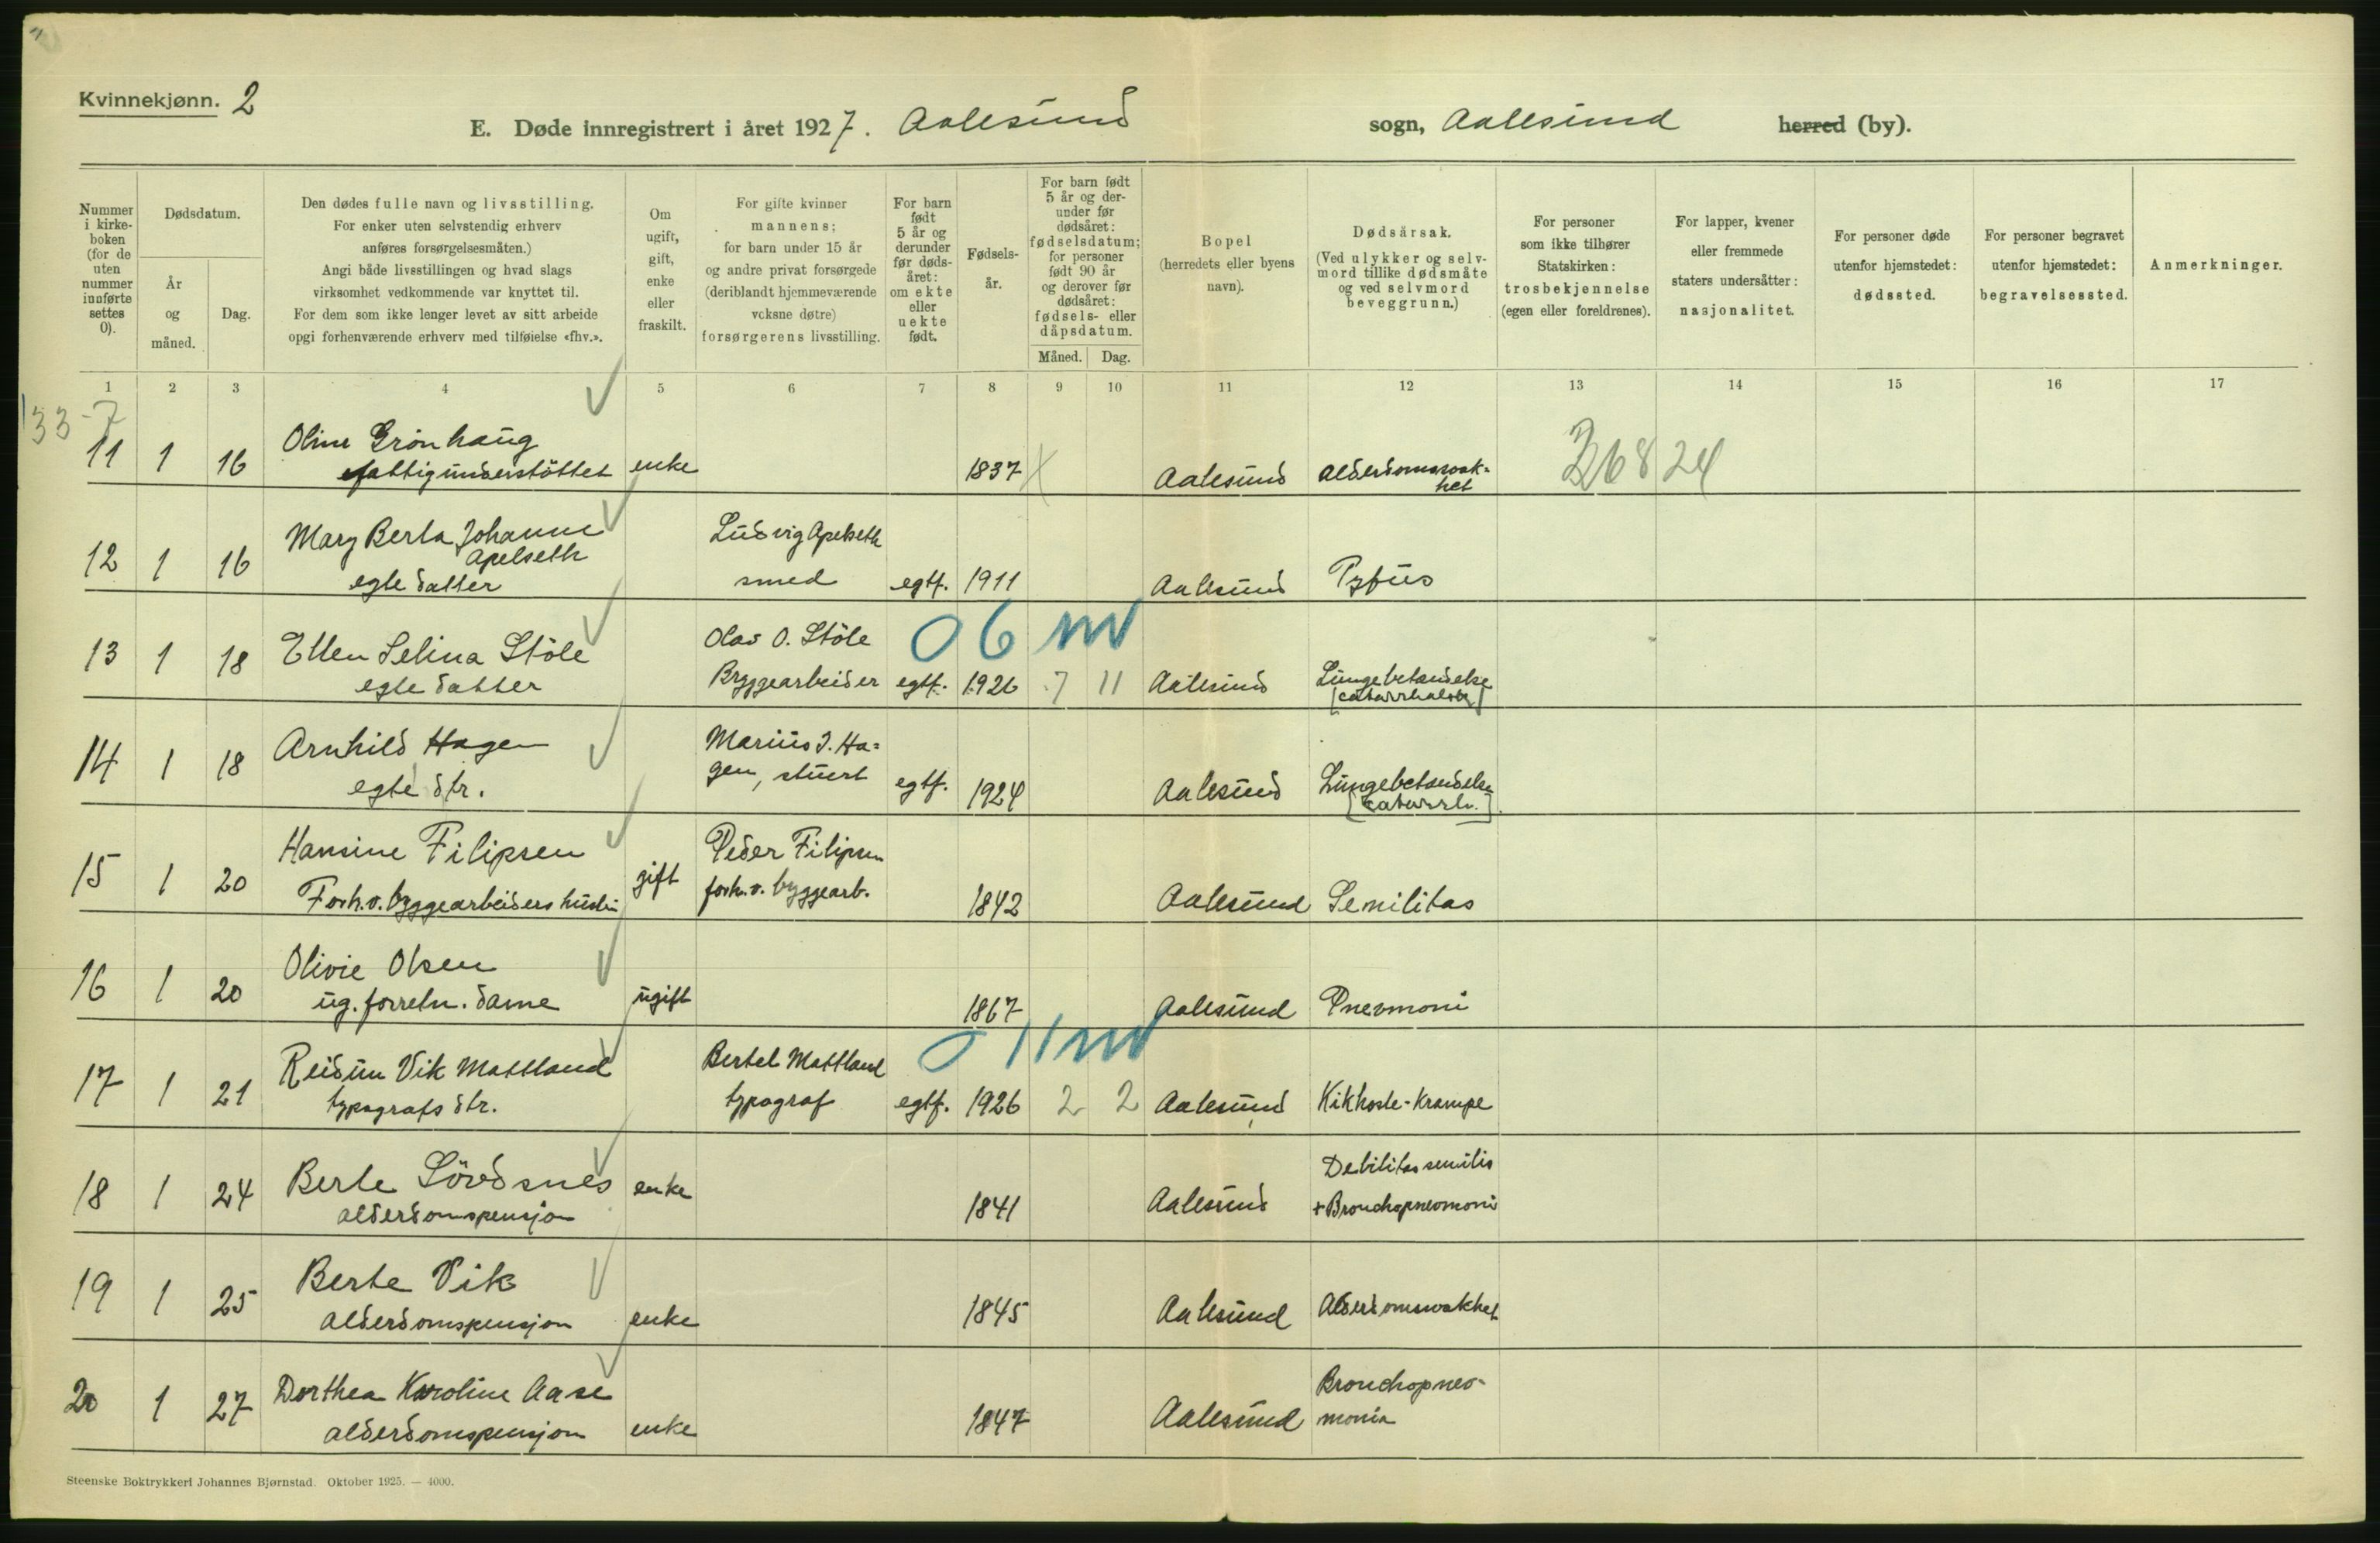 Kvinnekjønn. 2
E. Døde innregistrert i året 1927. Aalesund sogn, Aalesund herred (by).
Nummer i kirke-boken (for de uten nummer innførte settes 0).
Dødsdatum.
År og måned.
Dag.
Den dødes fulle navn og livsstilling.
For enker uten selvstendig erhverv
anføres forsørgelsesmåten.)
Angi både livsstillingen og hvad slags
virksomhet vedkommende var knyttet til.
For dem som ikke lenger levet av sitt arbeide
opgi forhenværende erhverv med tilføielse «fhv.».
Om ugift, gift, enke eller fraskilt.
For gifte kvinner
mannens;
for barn under 15 år
og andre privat forsørgede
(deriblandt hjemmeværende
voksne døtre)
forsørgerens livsstilling.
For barn født 5 år og derunder før døds-året: om ekte eller uekte født.
Fødsels-år.
For barn født 5 år og der-under før dødsåret: fødselsdatum; for personer født 90 år og derover før dødsåret: fødsels- eller dåpsdatum.
Måned. Dag.
Bopel
(herredets eller byens navn).
Dødsårsak.
(Ved ulykker og selv-mord tillike dødsmåte og ved selvmord beveggrunn.)
For personer som ikke tilhører Statskirken: trosbekjennelse (egen eller foreldrenes).
For lapper, kvener eller fremmede staters undersåtter: nasjonalitet.
For personer døde utenfor hjemstedet: dødssted.
For personer begravet utenfor hjemstedet: begravelsessted.
Anmerkninger.
1 2 3 4 5 6 7 8 9 10 11 12 13 14 15 16 17
133-7
11 1 16 Oline Grönhaug
fattigunderstöttet enke 1837 X Aalesund alderdomssvak-
het
26824
12 1 16 Mary Berta Johanne Ludvig Apelseth
Apelseth
egte datter smed egtf. 1911 Aalesund Tyfus
06 m
13 1 18 Ellen Selina Stöle Olav O. Stöle
egte datter Bryggearbeider egtf. 1926 7 11 Aalesund Lungebetendelse
(catarrhalsk)
14 1 18 Arnhild Hagen Marius I. Ha-
egte dtr. gen, stuert egtf. 1924 Aalesund Lungebetendelse
[catarrh.]
15 1 20 Hansine Filipsen gift Peder Filipsen
Forh.v. byggearbeiders hustru forh.v. byggearb. 1842 Aalesund Senilitas
16 1 20 Olivie Olsen
ug. forretn. dame ugift 1867 Aalesund Pnevmoni
0 11 m
17 1 21 Reidun Vik Mattland Bertel Mattland
typografs dtr. typograf egtf. 1926 2 2 Aalesund Kikhoste-Krampe
18 1 24 Berte Sövdsnes enke 1841 Aalesund Debilitas senilis
alderdomspensjon + Bronchopnevmoni
19 1 25 Berte Vik
alderdomspensjon enke 1845 Aalesund Alderdomssvakhet
20 1 27 Dorthea Karoline Aase
alderdomspensjon enke 1847 Aalesund Bronchopnev-
monia
Steenske Boktrykkeri Johannes Bjørnstad. Oktober 1925. — 4000.